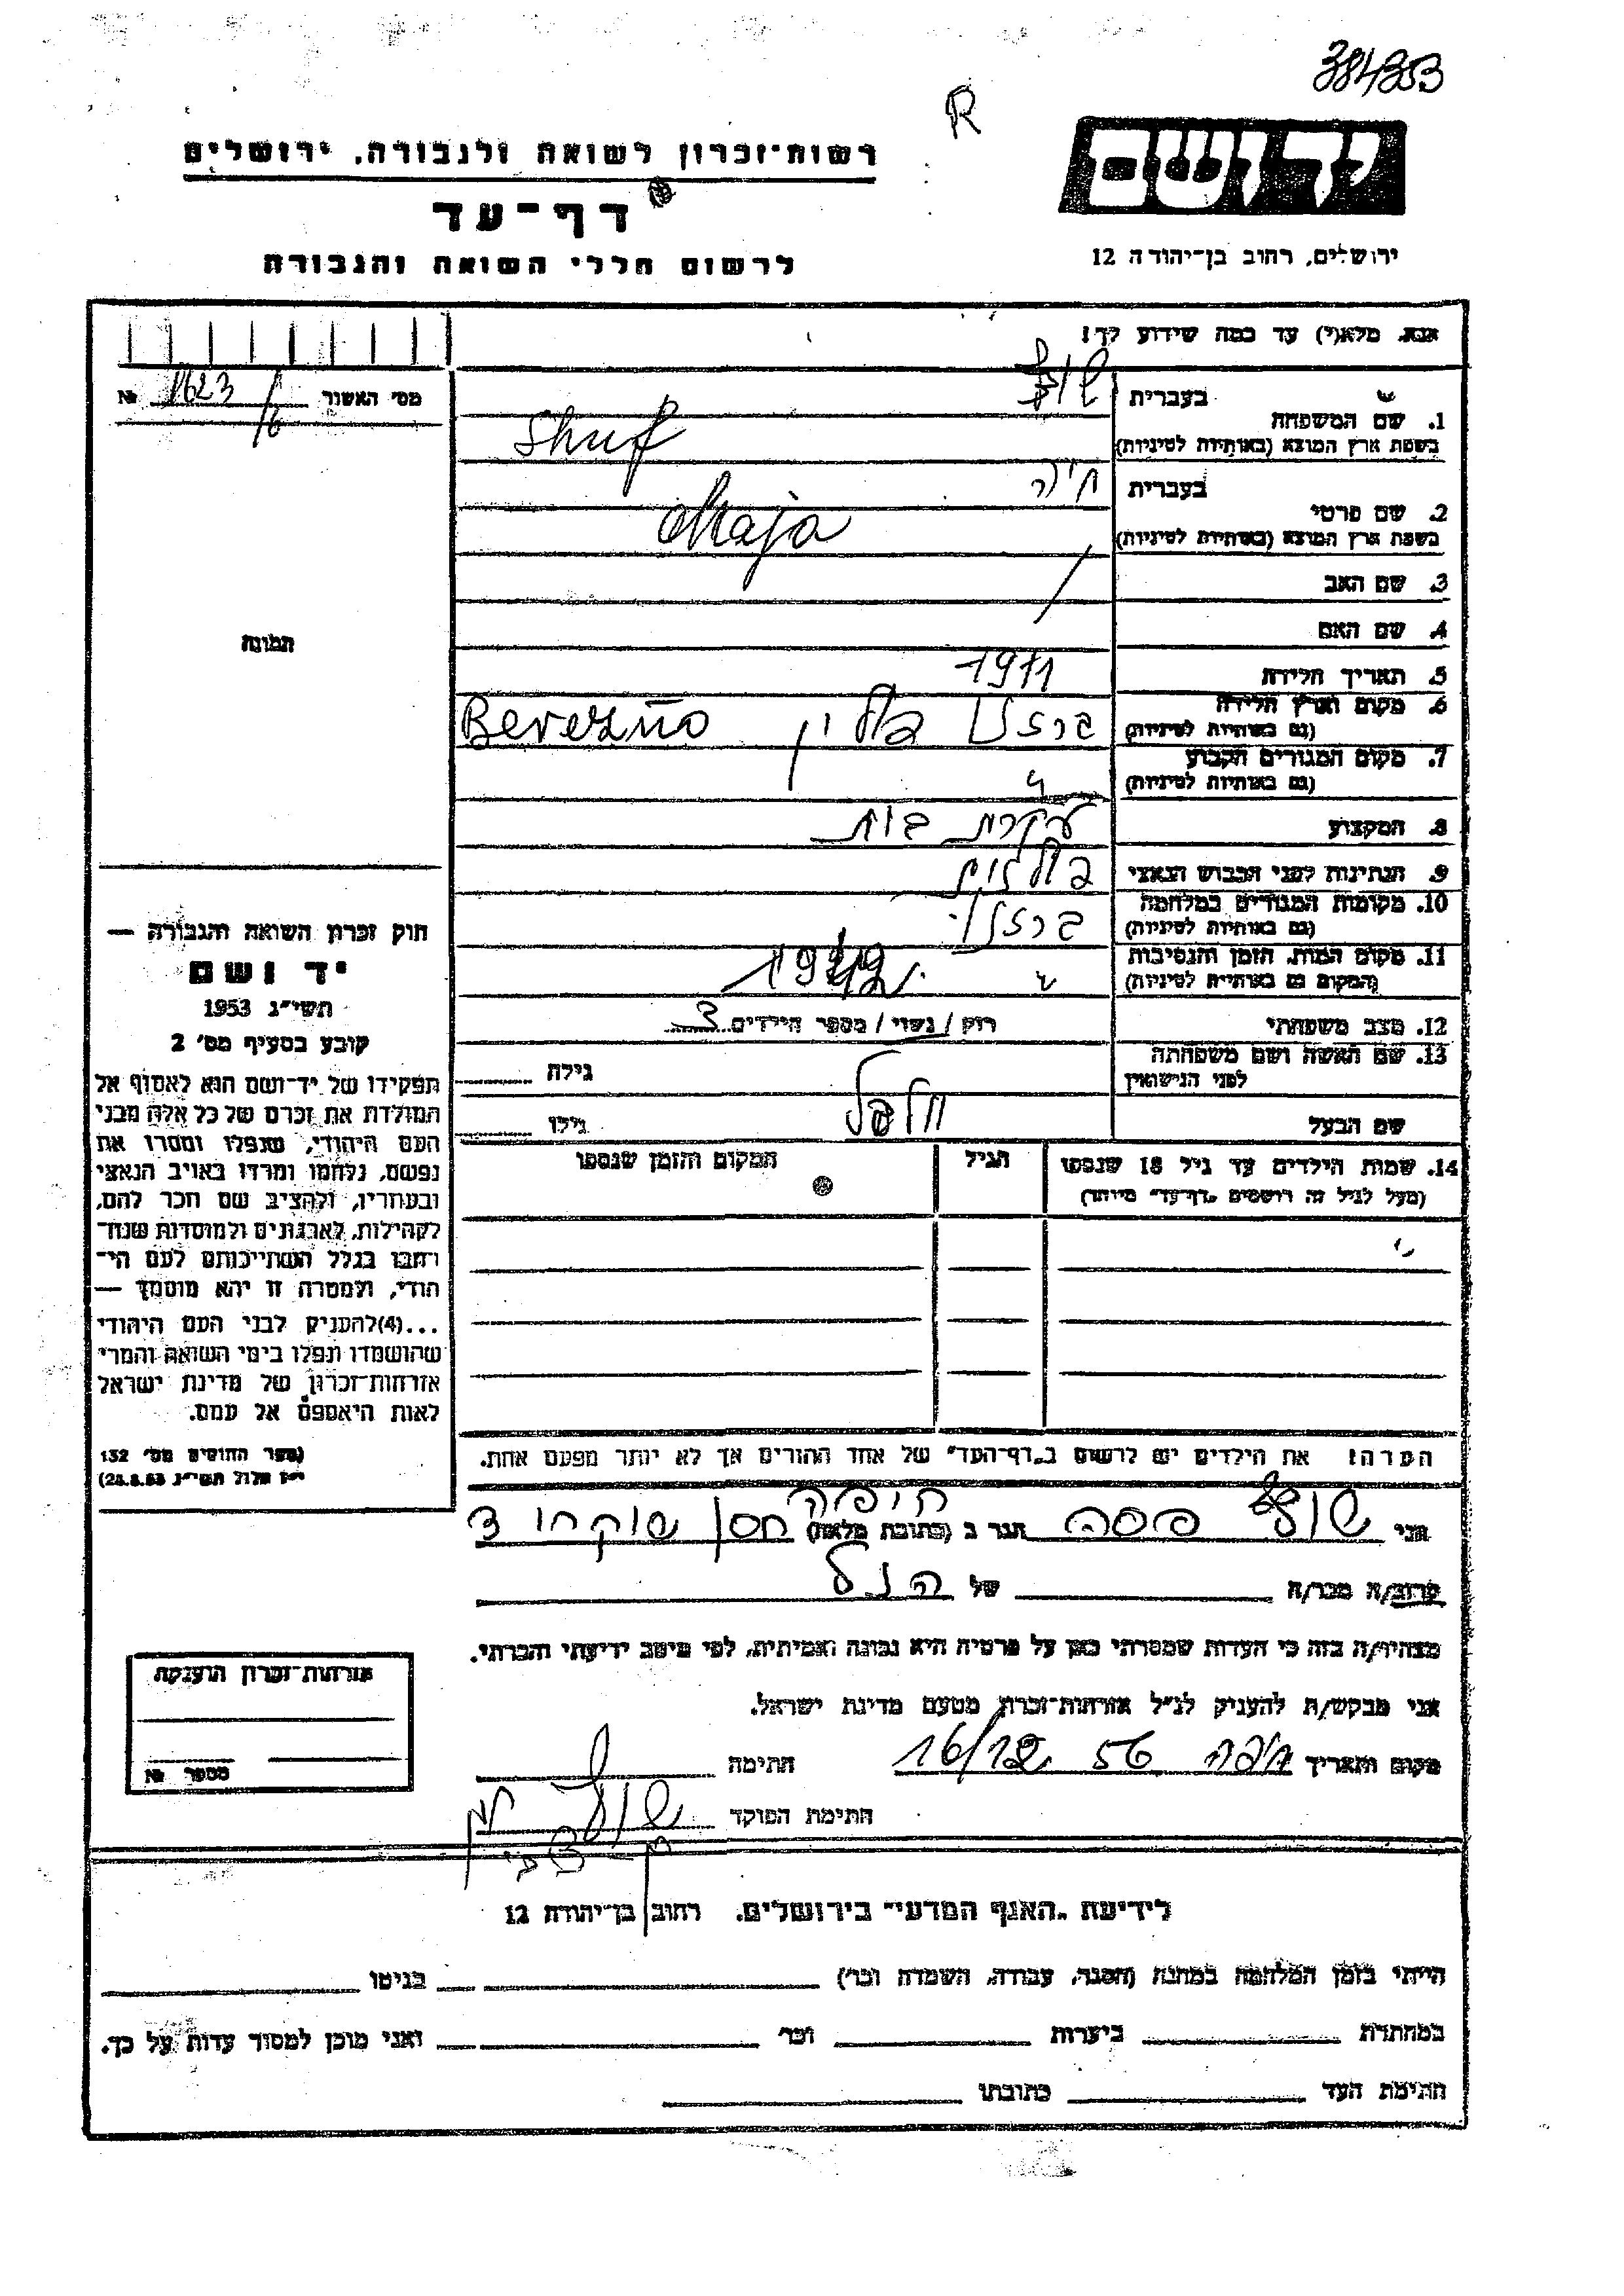 384353
R
יד ושם
רשות־זכרון לשואה ולגבורה, ירושלים
דף־עד
ירושלים, רחוב בן־יהודה 12
לרשום חללי השואה והגבורה
אנא, מלא(י) עד כמה שידוע לך!
מס' האשור № 1623/6
בעברית
1. שם המשפחה
בשפת ארץ המוצא (באותיות לטיניות) Shuf
בעברית חיה
2. שם פרטי
בשפת ארץ המוצא (באותיות לטיניות) Chaja
3. שם האב
4. שם האם
תמונה
5. תאריך הלידה 1911
6. מקום וארץ הלידה
(גם באותיות לטיניות) פולין Berezno
7. מקום המגורים הקבוע
(גם באותיות לטיניות)
8. המקצוע עקרת בית
9. הנתינות לפני הכבוש הנאצי פולנית
10. מקומות המגורים במלחמה
(גם באותיות לטיניות)
11. מקום המות, הזמן והנסיבות
(המקום גם באותיות לטיניות) 1942
12. מצב משפחתי רוק / נשוי / מספר הילדים 3
13. שם האשה ושם משפחתה
לפני הנישואין גילה
שם הבעל גילו
14. שמות הילדים עד גיל 18 שנספו הגיל המקום והזמן שנספו
(מעל לגיל זה רושמים „דף־עד" מיוחד)
חוק זכרון השואה והגבורה —
יד ושם
תשי״ג 1953
קובע בסעיף מס' 2
תפקידו של יד־ושם הוא לאסוף אל
המולדת את זכרם של כל אלה מבני
העם היהודי, שנפלו ומסרו את
נפשם, נלחמו ומרדו באויב הנאצי
ובעוזריו, ולהציב שם וזכר להם,
לקהילות, לארגונים ולמוסדות שנח־
רחבו בגלל השתייכותם לעם הי־
הודי, ולמטרה זו יהא מוסמך —
...(4)להעניק לבני העם היהודי
שהושמדו ונפלו בימי השואה והמרי
אזרחות־זכרון של מדינת ישראל
לאות היאספם אל עמם.
(ספר החוקים מס' 132
י״ז אלול תשי״ג 28.8.53)
הערה! את הילדים יש לרשום ב„דף־העד" של אחד ההורים אך לא יותר מפעם אחת.
חיפה
אני שוף פסה הגר ב (כתובת מלאה) חסן שוקרי 3
קרוב/ה מכר/ה של הנ״ל
מצהיר/ה בזה כי העדות שמסרתי כאן על פרטיה היא נכונה ואמיתית, לפי מיטב ידיעתי והכרתי.
אני מבקש/ת להעניק לנ״ל אזרחות־זכרון מטעם מדינת ישראל.
מקום ותאריך חיפה 56 16/12 חתימה
חתימת הפוקד
אזרחות־זכרון הוענקה
מספר №
לידיעת „האגף המדעי" בירושלים, רחוב בן־יהודה 12
הייתי בזמן המלחמה במחנה (הסגר, עבודה, השמדה וכו') בגיטו
במחתרת ביערות וכו' ואני מוכן למסור עדות על כך.
חתימת העד כתובתו